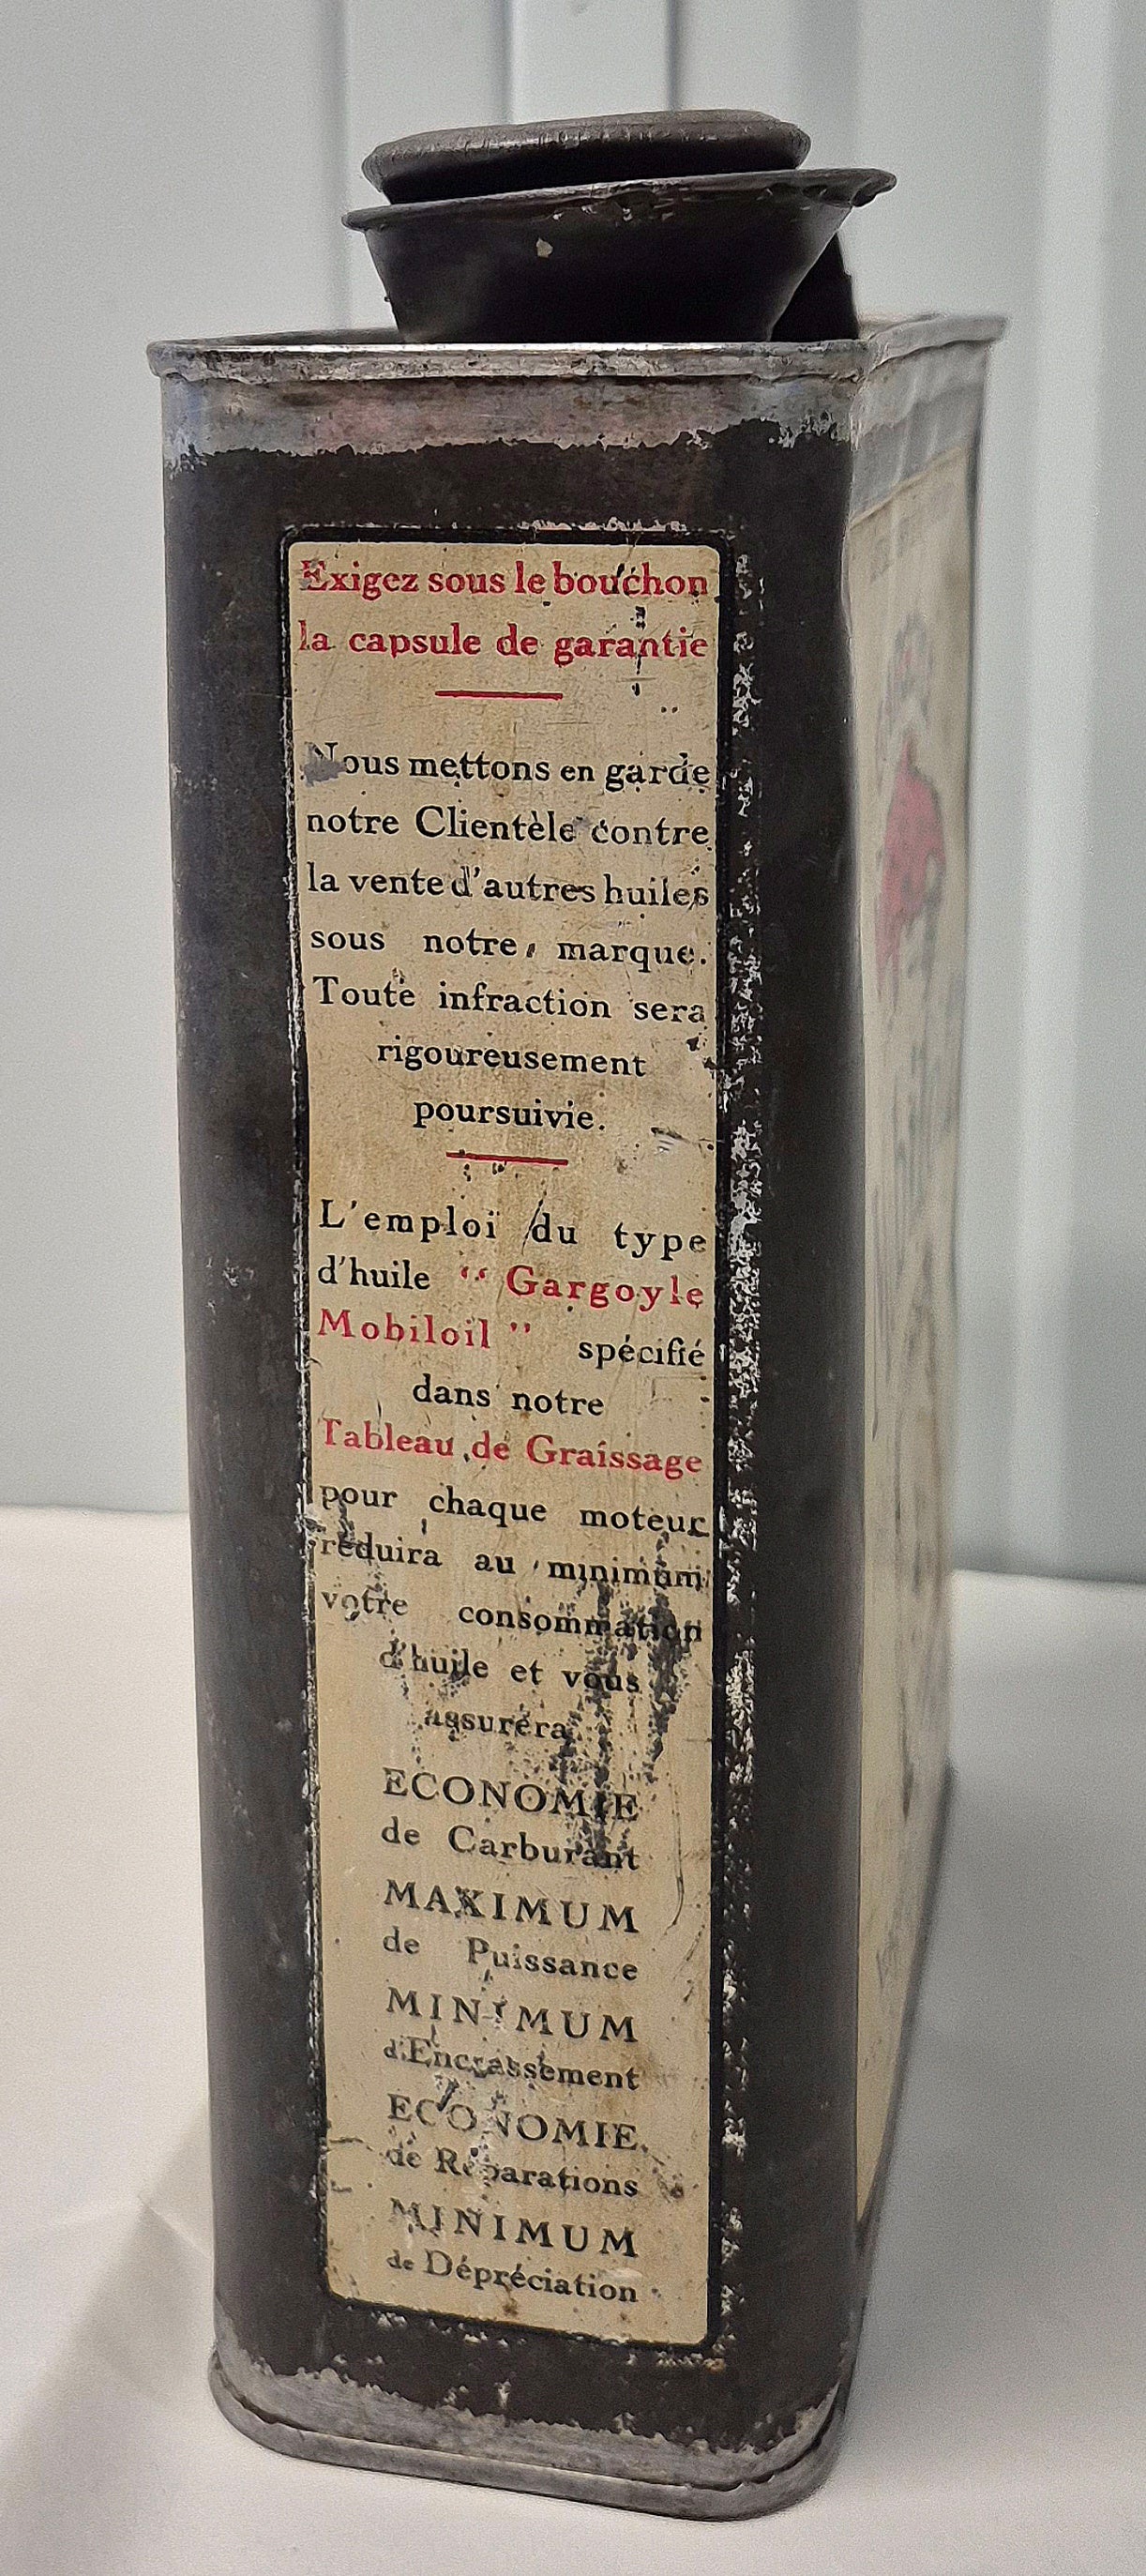 Exigez sous le bouchon
la capsule de garantie
Nous mettons en garde
notre Clientèle contre
la vente d'autres huiles
sous notre marque.
Toute infraction sera
rigoureusement
poursuivie.
L'emploi du type
d'huile “ Gargoyle
Mobiloil ” spécifié
dans notre
Tableau de Graissage
pour chaque moteur
réduira au minimum
votre consommation
d'huile et vous
assurera
ECONOMIE
de Carburant
MAXIMUM
de Puissance
MINIMUM
d'Encrassement
ECONOMIE
de Réparations
MINIMUM
de Dépréciation